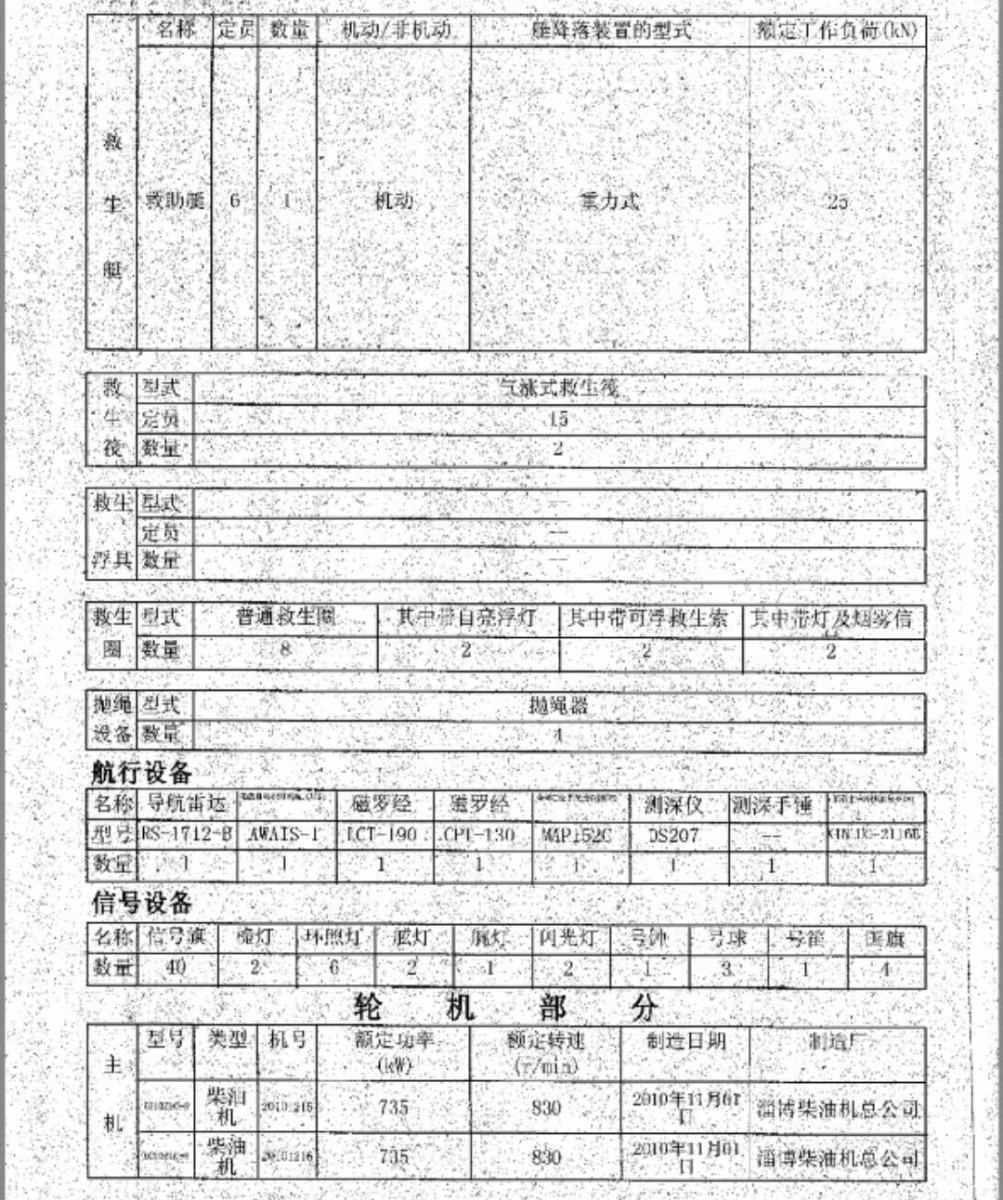 名称 定员 数量 机动/非机动 艇降落装置的型式 额定工作负荷(kN)
救生艇 救助艇 6 1 机动 重力式 25
救生筏 型式 气涨式救生筏
定员 15
数量 2
救生浮具 型式 —
定员 —
数量 —
救生圈 型式 普通救生圈 其中带自亮浮灯 其中带可浮救生索 其中带灯及烟雾信
数量 8 2 2 2
抛绳设备 型式 抛绳器
数量 4
航行设备
名称 导航雷达 磁罗经 磁罗经 测深仪 测深手锤
型号 RS-1712-B AWAIS-1 LCT-190 CPT-130 MAP152C DS207 --
数量 1 1 1 1 1 1 1 1
信号设备
名称 信号旗 桅灯 环照灯 舷灯 艉灯 闪光灯 号钟 号球 号笛 国旗
数量 40 2 6 2 1 2 1 3 1 4
轮机部分
主机 型号 类型 机号 额定功率(kW) 额定转速(r/min) 制造日期 制造厂
柴油机 20101215 735 830 2010年11月01日 淄博柴油机总公司
柴油机 20101216 735 830 2010年11月01日 淄博柴油机总公司